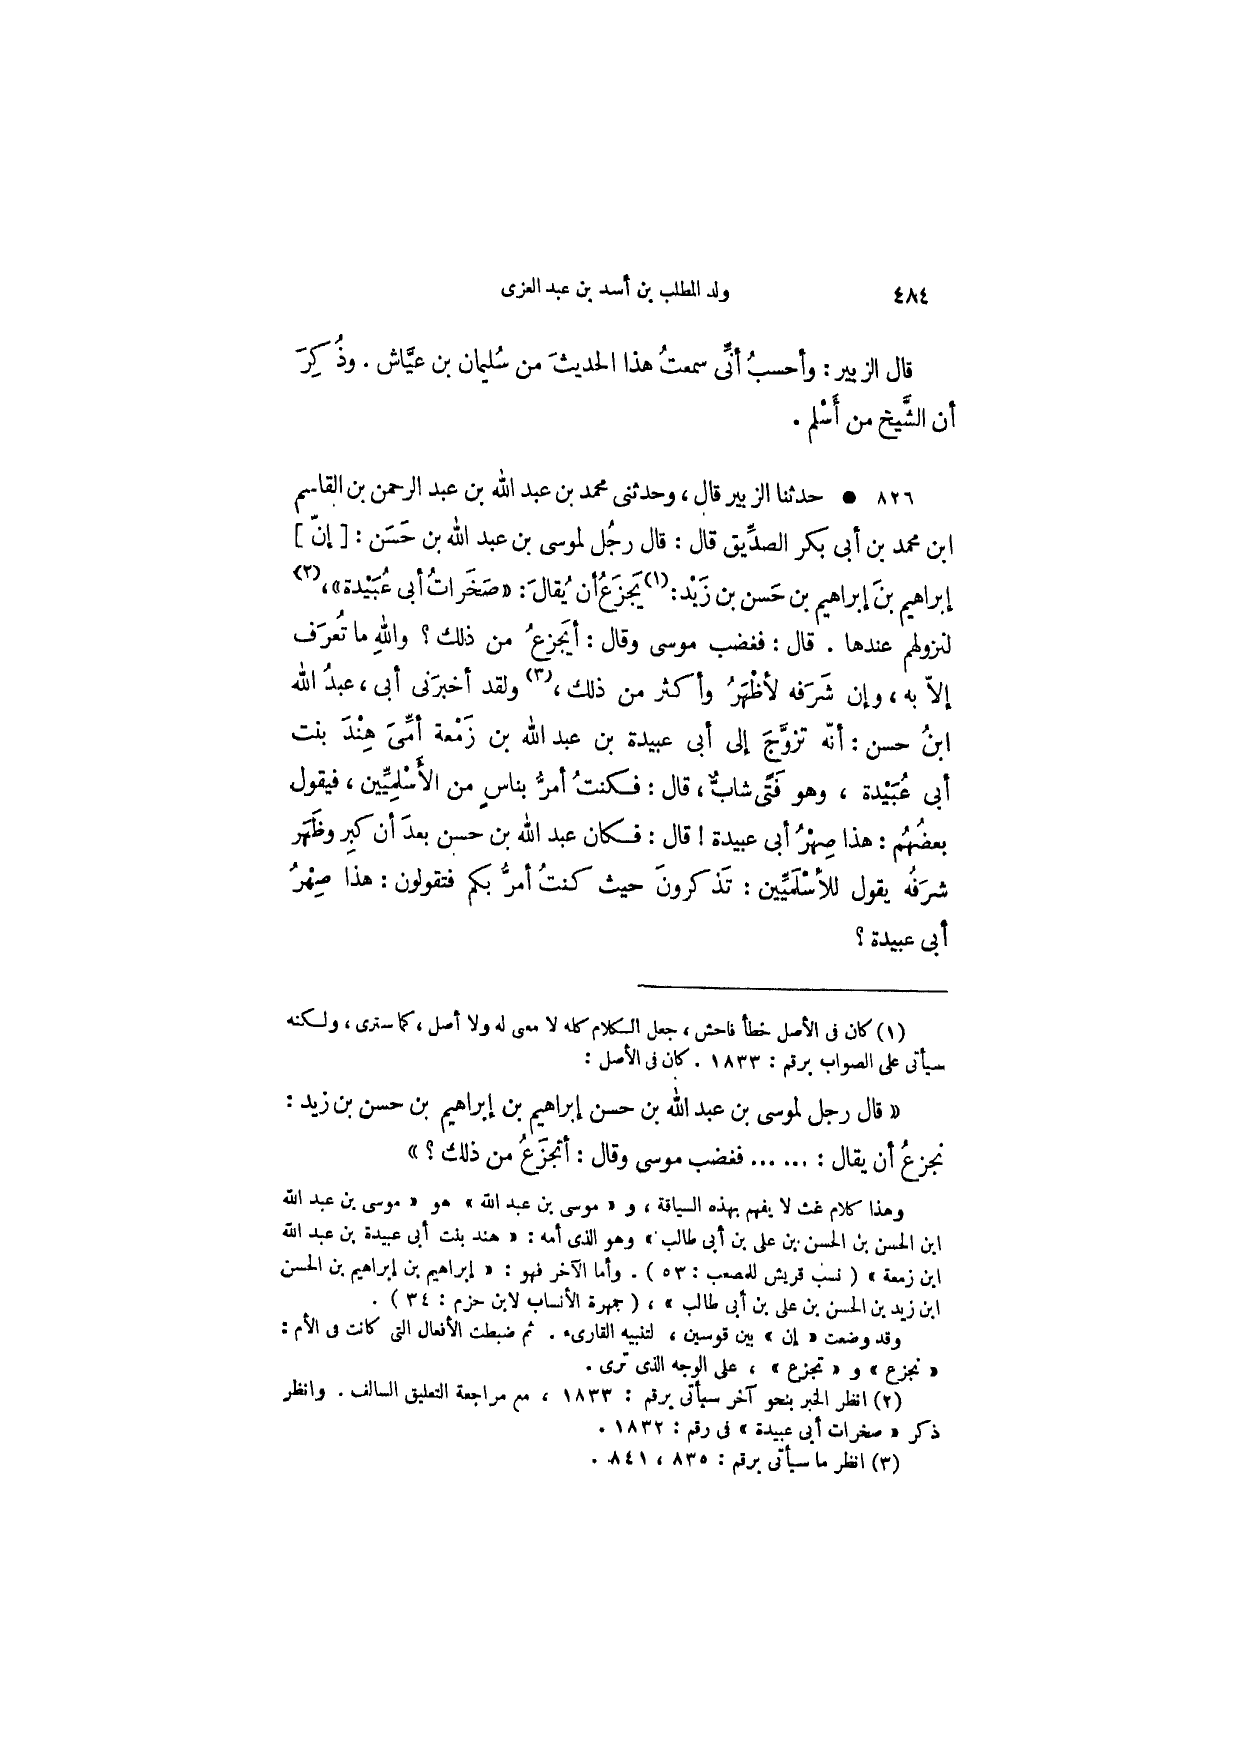 ٤٨٤ ولد المطلب بن أسد بن عبد العزى
قال الزبير : وأحسبُ أنِّى سمعتُ هذا الحديثَ من سُليمان بن عيَّاش . وذُكِرَ
أن الشَّيخ من أَسْلم .
٨٢٦ ● حدثنا الزبير قال ، وحدثنى محمد بن عبد الله بن عبد الرحمن بن القاسم
ابن محمد بن أبى بكر الصدِّيق قال : قال رجُل لموسى بن عبد الله بن حَسَن : [ إنّ ]
إبراهيم بنَ إبراهيم بن حَسن بن زَيْد :(١) يَجزَعُ أن يُقالَ : «صَخَراتُ أبى عُبَيْدة» ،(٢)
لنزولهم عندها . قال : فغضب موسى وقال : أيَجزعُ من ذلك ؟ واللهِ ما تُعرَف
إلاّ به ، وإن شَرَفه لأظْهَرُ وأكثر من ذلك ،(٣) ولقد أخبرَنى أبى ، عبدُ الله
ابنُ حسن : أنّه تزوَّجَ إلى أبى عبيدة بن عبد الله بن زَمْعة أمِّىَ هِنْدَ بنت
أبى عُبَيْدة ، وهو فَتًى شابٌّ ، قال : فكنتُ أمرُّ بناسٍ من الأَسْلميِّين ، فيقول
بعضُهُم : هذا صِهْرُ أبى عبيدة ! قال : فكان عبد الله بن حسن بعدَ أن كبِر وظَهَر
شرَفُه يقول للأسْلَميِّين : تَذكرونَ حيث كنتُ أمرُّ بكم فتقولون : هذا صِهْرُ
أبى عبيدة ؟
(١) كان فى الأصل خطأ فاحش ، جعل الكلام كله لا معنى له ولا أصل ، كما سترى ، ولكنه
سيأتى على الصواب برقم : ١٨٣٣ . كان فى الأصل :
« قال رجل لموسى بن عبد الله بن حسن إبراهيم بن إبراهيم بن حسن بن زيد :
نجزعُ أن يقال : ... ... فغضب موسى وقال : أتجزَعُ من ذلك ؟ »
وهذا كلام غث لا يفهم بهذه السياقة ، و « موسى بن عبد الله » هو « موسى بن عبد الله
ابن الحسن بن الحسن بن على بن أبى طالب » وهو الذى أمه : « هند بنت أبى عبيدة بن عبد الله
ابن زمعة » ( نسب قريش للمصعب : ٥٣ ) . وأما الآخر فهو : « إبراهيم بن إبراهيم بن الحسن
ابن زيد بن الحسن بن على بن أبى طالب » ، ( جمهرة الأنساب لابن حزم : ٣٤ ) .
وقد وضعت « إن » بين قوسين ، لتنبيه القارىء . ثم ضبطت الأفعال التى كانت فى الأم :
« نجزع » و « تجزع » ، على الوجه الذى ترى .
(٢) انظر الخبر بنحو آخر سيأتى برقم : ١٨٣٣ ، مع مراجعة التعليق السالف . وانظر
ذكر « صخرات أبى عبيدة » فى رقم : ١٨٣٢ .
(٣) انظر ما سيأتى برقم : ٨٣٥ ، ٨٤١ .